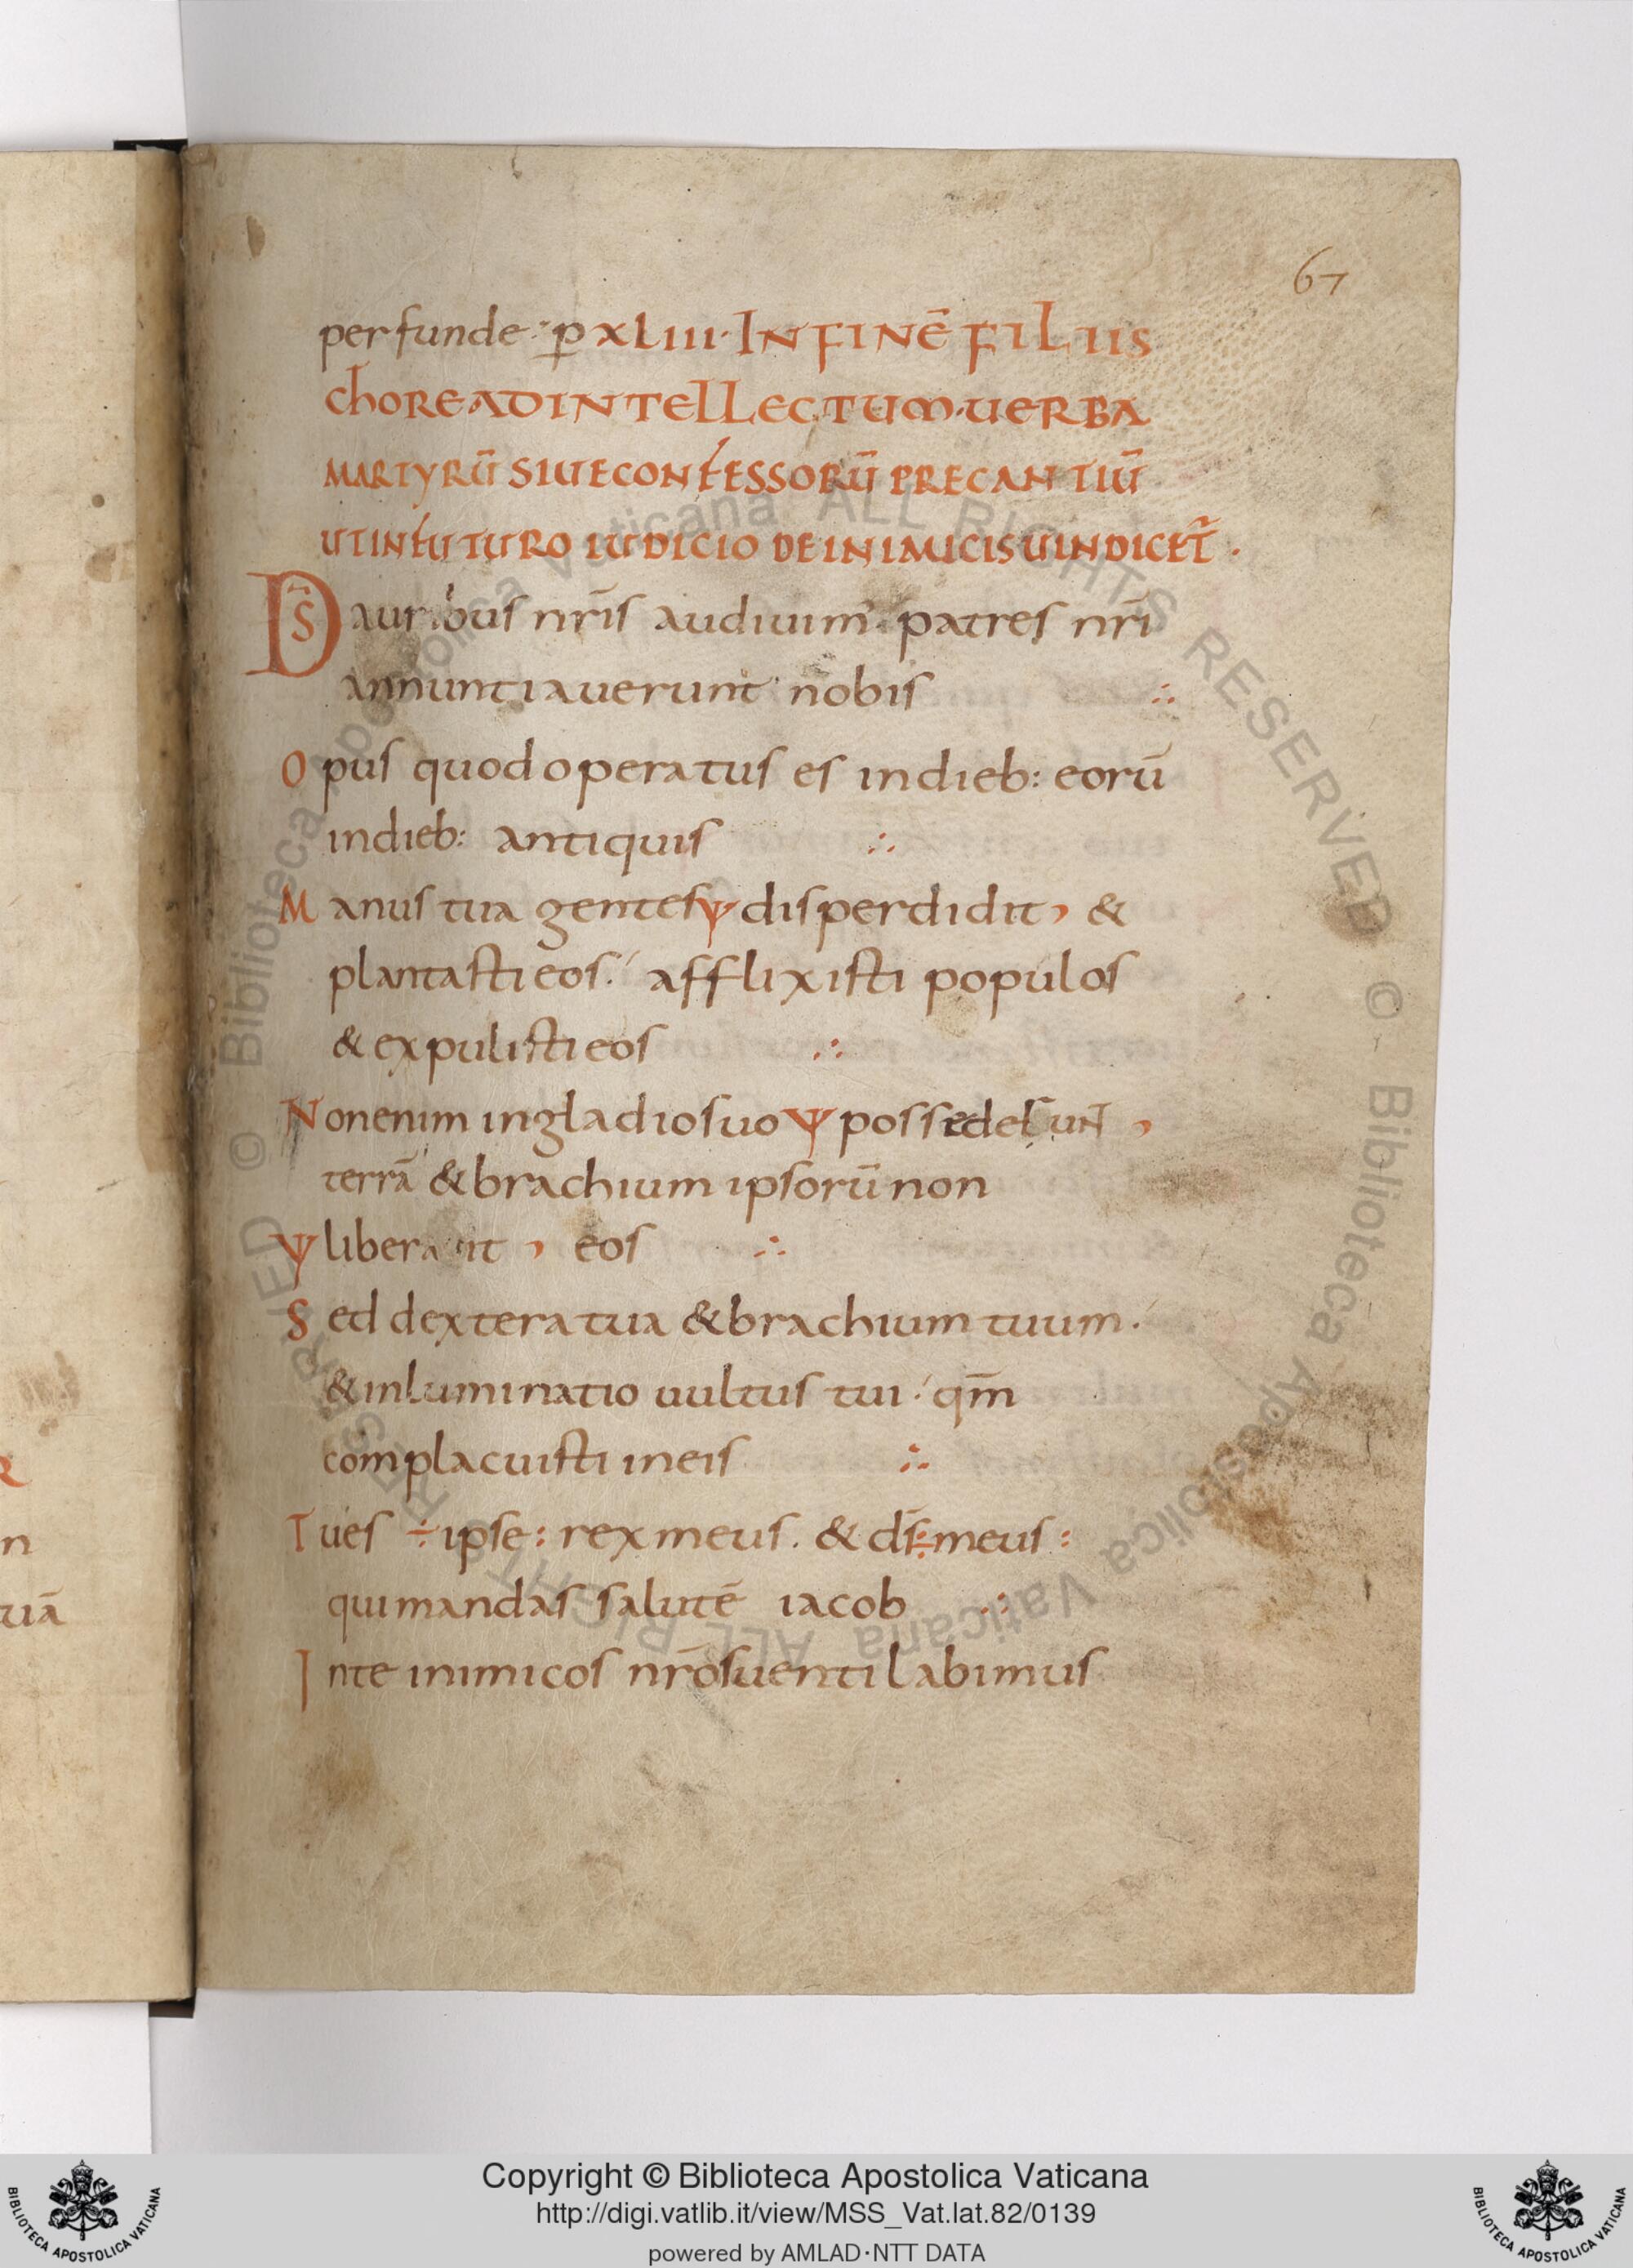 67
perfunde· p̱ XLIII· IN FINĒ FILIIS
CHORE AD INTELLECTUM· UERBA
MARTYRŪ SIUE CONFESSORŪ PRECANTIŪ
UT IN FUTURO IUDICIO DE INIMICIS UINDICET̄ ·
D̄S auribus nr̄is audiuim· patres nr̄i
annuntiauerunt nobis ∴
Opus quod operatus es in dieb: eorū
in dieb: antiquis ∴
Manus tua gentes ѱ disperdidit, &
plantasti eos. afflixisti populos
& expulisti eos ∴
Non enim in gladio suo ѱ
terrā & brachium ipsorū non
ѱ eos ∴
Sed dextera tua & brachium tuum.
& inluminatio uultus tui· qm̄
complacuisti in eis ∴
Tu es ÷ ipse : rex meus. & ds̄ ÷ meus :
qui mandas salutē iacob ∴
In te inimicos nr̄os uentilabimus
R
n
tuā
© Biblioteca Apostolica Vaticana ALL RIGHTS RESERVED © Biblioteca Apostolica Vaticana ALL RIGHTS RESERVED
Copyright © Biblioteca Apostolica Vaticana
http://digi.vatlib.it/view/MSS_Vat.lat.82/0139
powered by AMLAD·NTT DATA
BIBLIOTECA APOSTOLICA VATICANA
BIBLIOTECA APOSTOLICA VATICANA